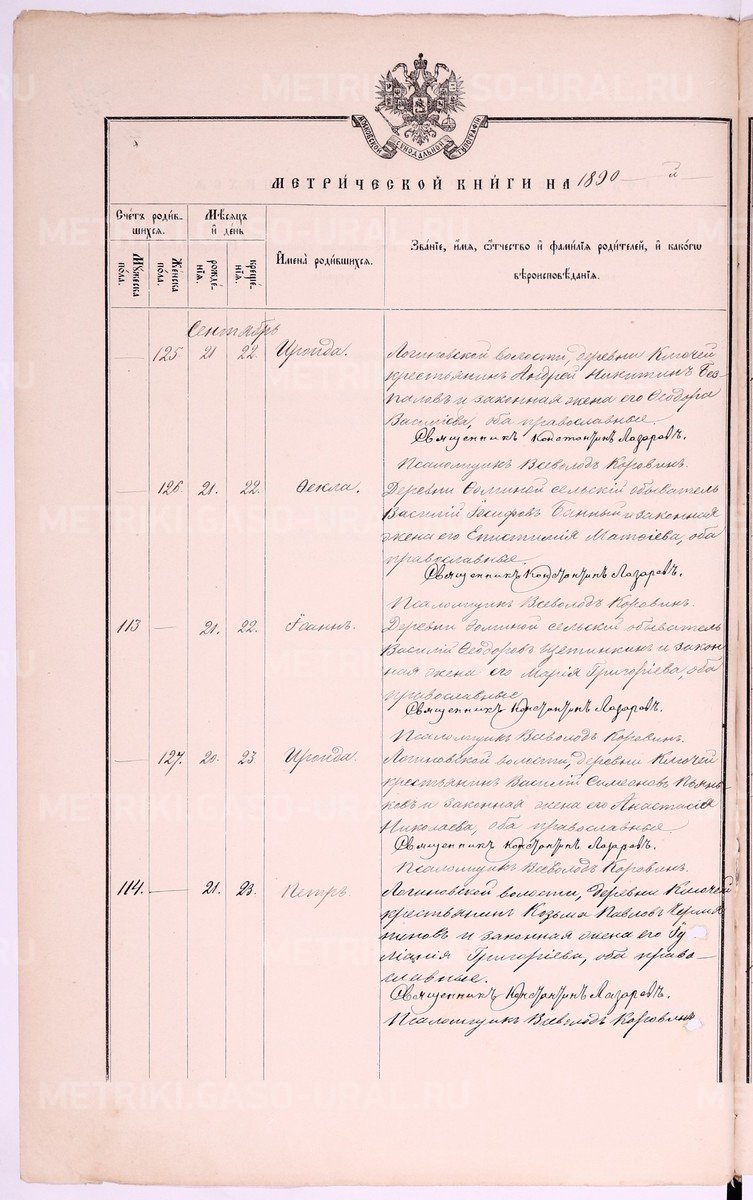 METRIKI.GASO-URAL.RU
МОСКОВСКОЙ СѴНОДАЛЬНОЙ ТѴПОГРАФІИ
МЕТРИ́ЧЕСКОЙ КНИ́ГИ НА 1890
Сче́тъ роди́в-
шихся.
Мꙋ́жеска
по́ла.
Же́нска
по́ла.
Мѣ́сяцъ
и҆ де́нь
рожде́-
нїѧ.
креще́-
нїѧ.
И҆мена̀ роди́вшихся.
Зва́нїе, и҆́мя, ѻ҆́тчество и҆ фами́лїя роди́телей, и҆ како́гѡ
вѣроисповѣ́данїя.
Сентябрь
— 125. 21 22. Ироида. Логиновской волости, деревни Ключей
крестьянинъ Андрей Никитинъ Без-
паловъ и законная жена его Ѳеодора
Василіева, оба православные.
Священникъ Константинъ Лазаревъ.
Псаломщикъ Всеволодъ Коровинъ.
— 126. 21. 22. Ѳекла. Деревни сельскій обыватель
Василій Іосифовъ Банный и законная
жена его Епистимія Матѳіева, оба
православные.
Священникъ Константинъ Лазаревъ.
Псаломщикъ Всеволодъ Коровинъ.
113 — 21. 22. Іоаннъ. Деревни сельскій обыватель
Василій Ѳеодоровъ Щетинкинъ и закон-
ная жена его Марія Григоріева, оба
православные.
Священникъ Константинъ Лазаревъ.
Псаломщикъ Всеволодъ Коровинъ.
— 127. 20. 23. Ироида. Логиновской волости, деревни Ключей
крестьянинъ Василій Симеоновъ
и законная жена его Анастасія
Николаева, оба православные.
Священникъ Константинъ Лазаревъ.
Псаломщикъ Всеволодъ Коровинъ.
114. — 21. 23. Петръ. Логиновской волости, деревни Ключей
крестьянинъ Козьма Павловъ Чермя-
ниновъ и законная жена его Іу-
ліанія Григоріева, оба право-
славные.
Священникъ Константинъ Лазаревъ.
Псаломщикъ Всеволодъ Коровинъ